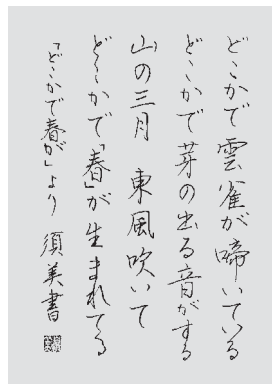 どこかで雲雀が啼いている
どこかで芽の出る音がする
山の三月　東風吹いて
どこかで「春」が生まれてる
「どこかで春が」より　須美書